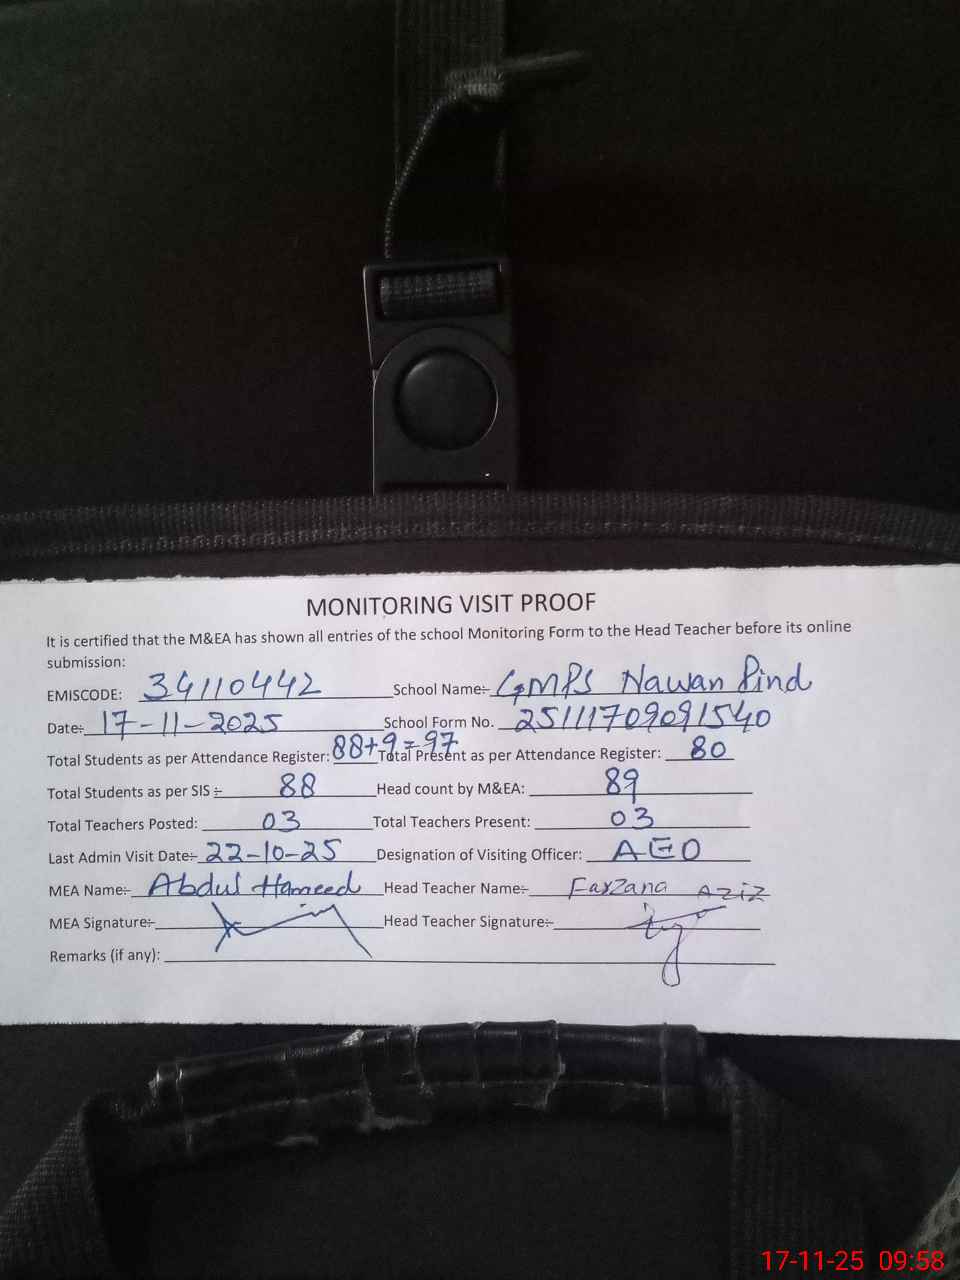 MONITORING VISIT PROOF
It is certified that the M&EA has shown all entries of the school Monitoring Form to the Head Teacher before its online
submission:
EMISCODE: 34110442 School Name:- GMPS Nawan Pind
Date:- 17-11-2025 School Form No. 25111709091540
Total Students as per Attendance Register: 88+9=97 Total Present as per Attendance Register: 80
Total Students as per SIS :- 88 Head count by M&EA: 89
Total Teachers Posted: 03 Total Teachers Present: 03
Last Admin Visit Date:- 22-10-25 Designation of Visiting Officer: AEO
MEA Name:- Abdul Hameed Head Teacher Name:- Farzana Aziz
MEA Signature:- Head Teacher Signature:-
Remarks (if any):
17-11-25 09:58